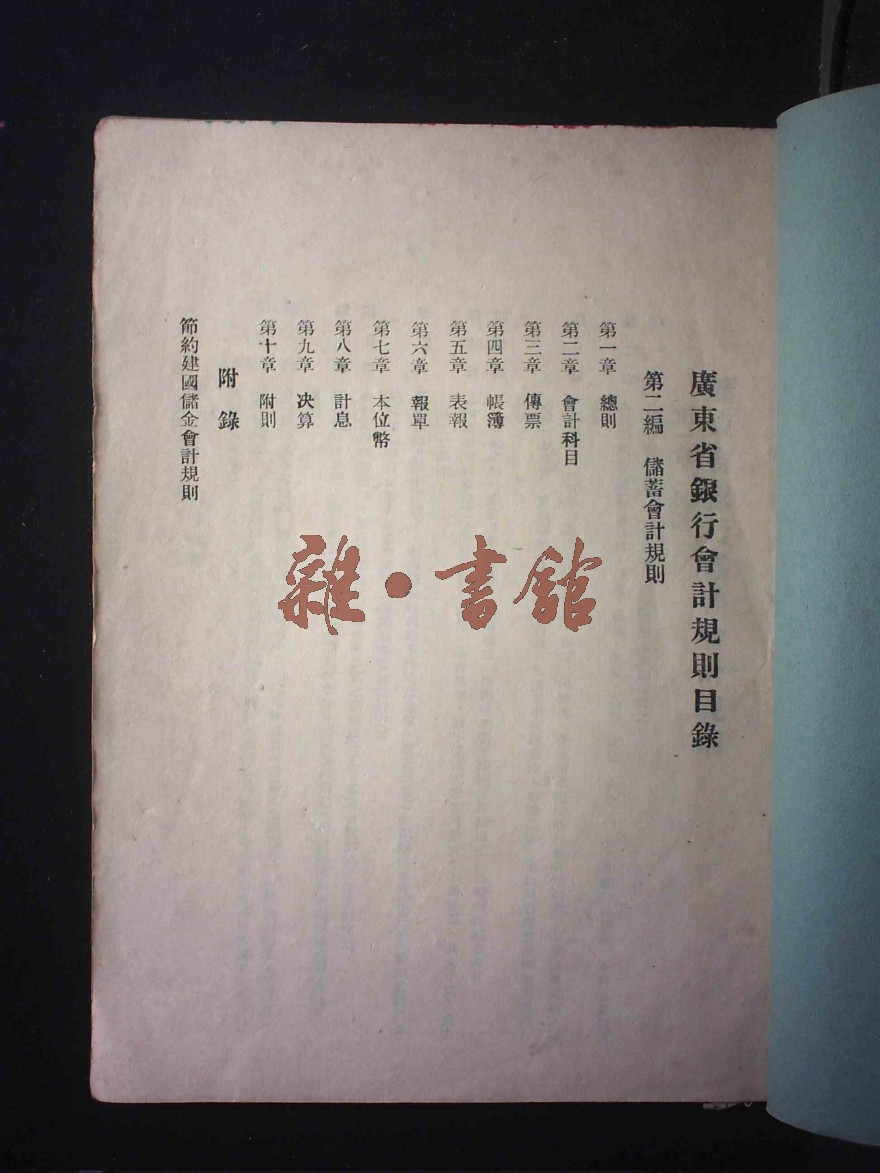 廣東省銀行會計規則目錄
第二編　儲蓄會計規則
第一章　總則
第二章　會計科目
第三章　傳票
第四章　帳簿
第五章　表報
第六章　報單
第七章　本位幣
第八章　計息
第九章　决算
第十章　附則
附錄
節約建國儲金會計規則
雜·書館